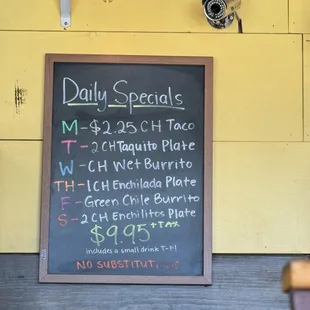 Daily Specials
M - $2.25 CH Taco
T - 2 CH Taquito Plate
W - CH Wet Burrito
TH - 1 CH Enchilada Plate
F - Green Chile Burrito
S - 2 CH Enchilitos Plate
$9.95 + TAX
includes a small drink T-F!
NO SUBSTITUT